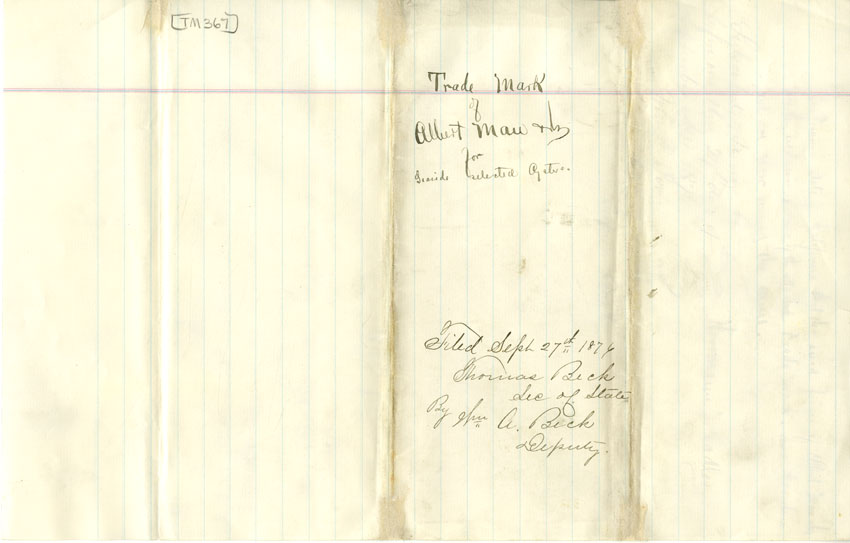 [TM367]
Trade Mark
of
Albert Mau & Co
for
Seaside selected Oysters.
Filed Sept 27th 1876
Thomas Beck
Sec of State
By Wm A. Beck
Deputy.